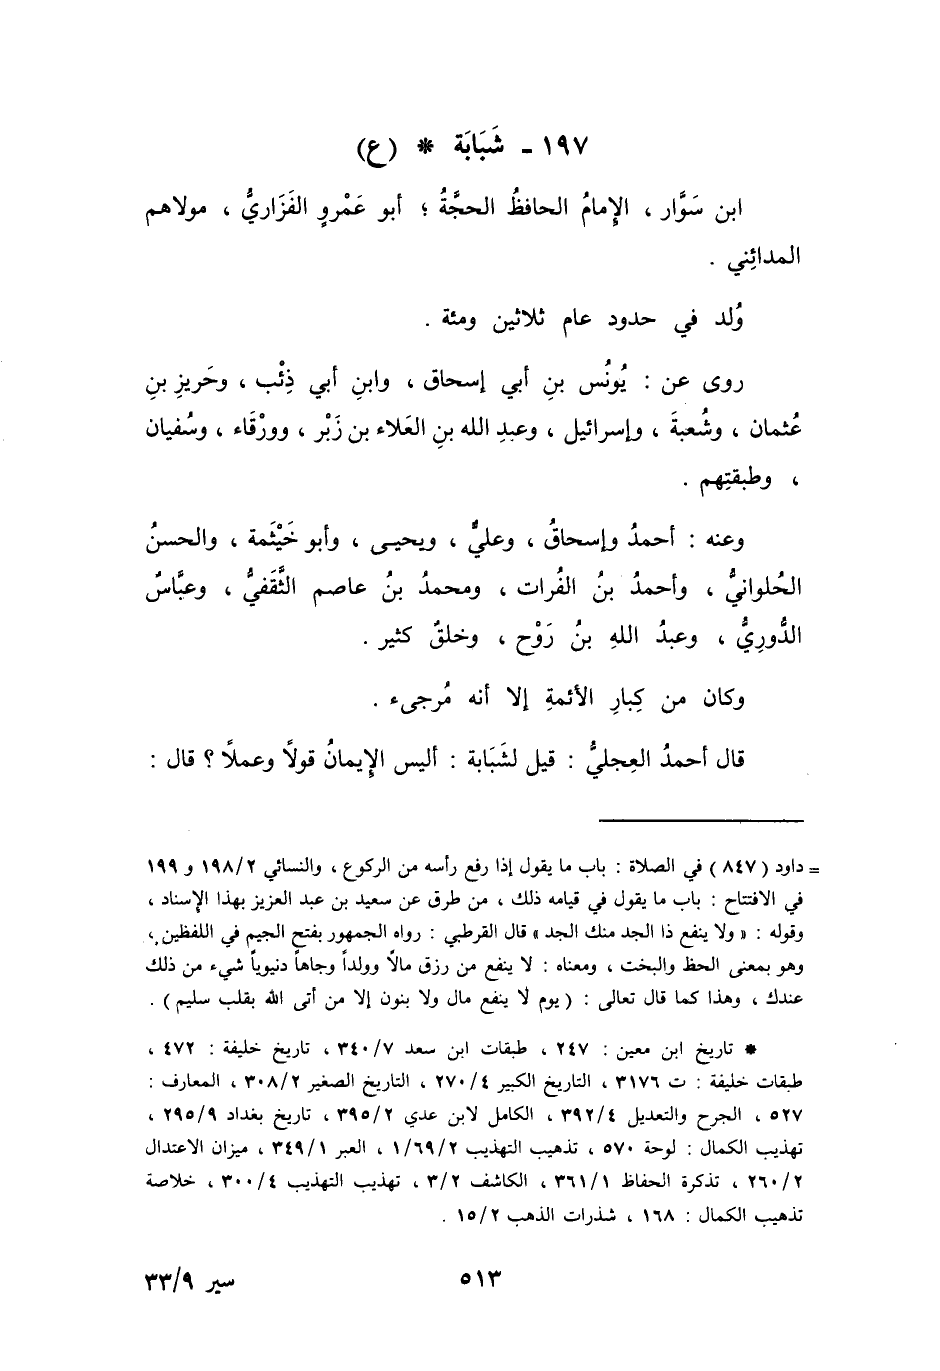 ١٩٧ - شَبَابَة * (ع)
ابن سَوَّار ، الإِمامُ الحافظُ الحجَّةُ ؛ أبو عَمْروٍ الفَزَاريُّ ، مولاهم
المدائِني .
وُلد في حدود عام ثلاثين ومئة .
روى عن : يُونُس بنِ أبي إسحاق ، وابنِ أبي ذِئْب ، وحَريزِ بنِ
عُثمان ، وشُعبةَ ، وإسرائيل ، وعبدِ الله بنِ العَلاء بن زَبْر ، وورْقَاء ، وسُفيان
، وطبقتِهم .
وعنه : أحمدُ وإسحاقُ ، وعليٌّ ، ويحيى ، وأبو خَيْثَمة ، والحسنُ
الحُلوانيُّ ، وأحمدُ بنُ الفُرات ، ومحمدُ بنُ عاصم الثَّقَفيُّ ، وعبَّاسٌ
الدُّورِيُّ ، وعبدُ اللهِ بنُ رَوْح ، وخلقٌ كثير .
وكان من كِبارِ الأئمةِ إلا أنه مُرجىء .
قال أحمدُ العِجليُّ : قيل لشَبَابة : أليس الإِيمانُ قولاً وعملاً ؟ قال :
= داود ( ٨٤٧ ) في الصلاة : باب ما يقول إذا رفع رأسه من الركوع ، والنسائي ١٩٨/٢ و ١٩٩
في الافتتاح : باب ما يقول في قيامه ذلك ، من طرق عن سعيد بن عبد العزيز بهذا الإسناد ،
وقوله : « ولا ينفع ذا الجد منك الجد » قال القرطبي : رواه الجمهور بفتح الجيم في اللفظين ،
وهو بمعنى الحظ والبخت ، ومعناه : لا ينفع من رزق مالاً وولداً وجاهاً دنيوياً شيء من ذلك
عندك ، وهذا كما قال تعالى : ( يوم لا ينفع مال ولا بنون إلا من أتى الله بقلب سليم ) .
* تاريخ ابن معين : ٢٤٧ ، طبقات ابن سعد ٣٤٠/٧ ، تاريخ خليفة : ٤٧٢ ،
طبقات خليفة : ت ٣١٧٦ ، التاريخ الكبير ٢٧٠/٤ ، التاريخ الصغير ٣٠٨/٢ ، المعارف :
٥٢٧ ، الجرح والتعديل ٣٩٢/٤ ، الكامل لابن عدي ٣٩٥/٢ ، تاريخ بغداد ٢٩٥/٩ ،
تهذيب الكمال : لوحة ٥٧٠ ، تذهيب التهذيب ١/٦٩/٢ ، العبر ٣٤٩/١ ، ميزان الاعتدال
٢٦٠/٢ ، تذكرة الحفاظ ٣٦١/١ ، الكاشف ٣/٢ ، تهذيب التهذيب ٣٠٠/٤ ، خلاصة
تذهيب الكمال : ١٦٨ ، شذرات الذهب ١٥/٢ .
٥١٣
سير ٣٣/٩